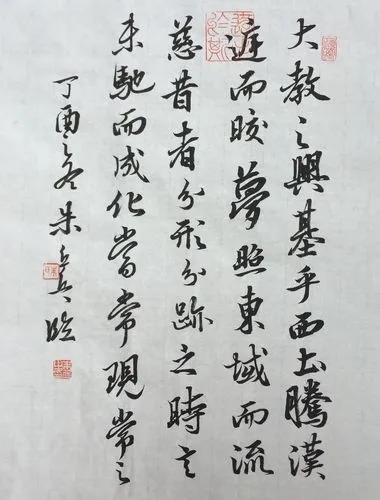 大教之興基乎西土騰漢
庭而晈夢照東域而流
慈昔者分形分跡之時言
未馳而成化當常現常之
丁酉冬朱臨